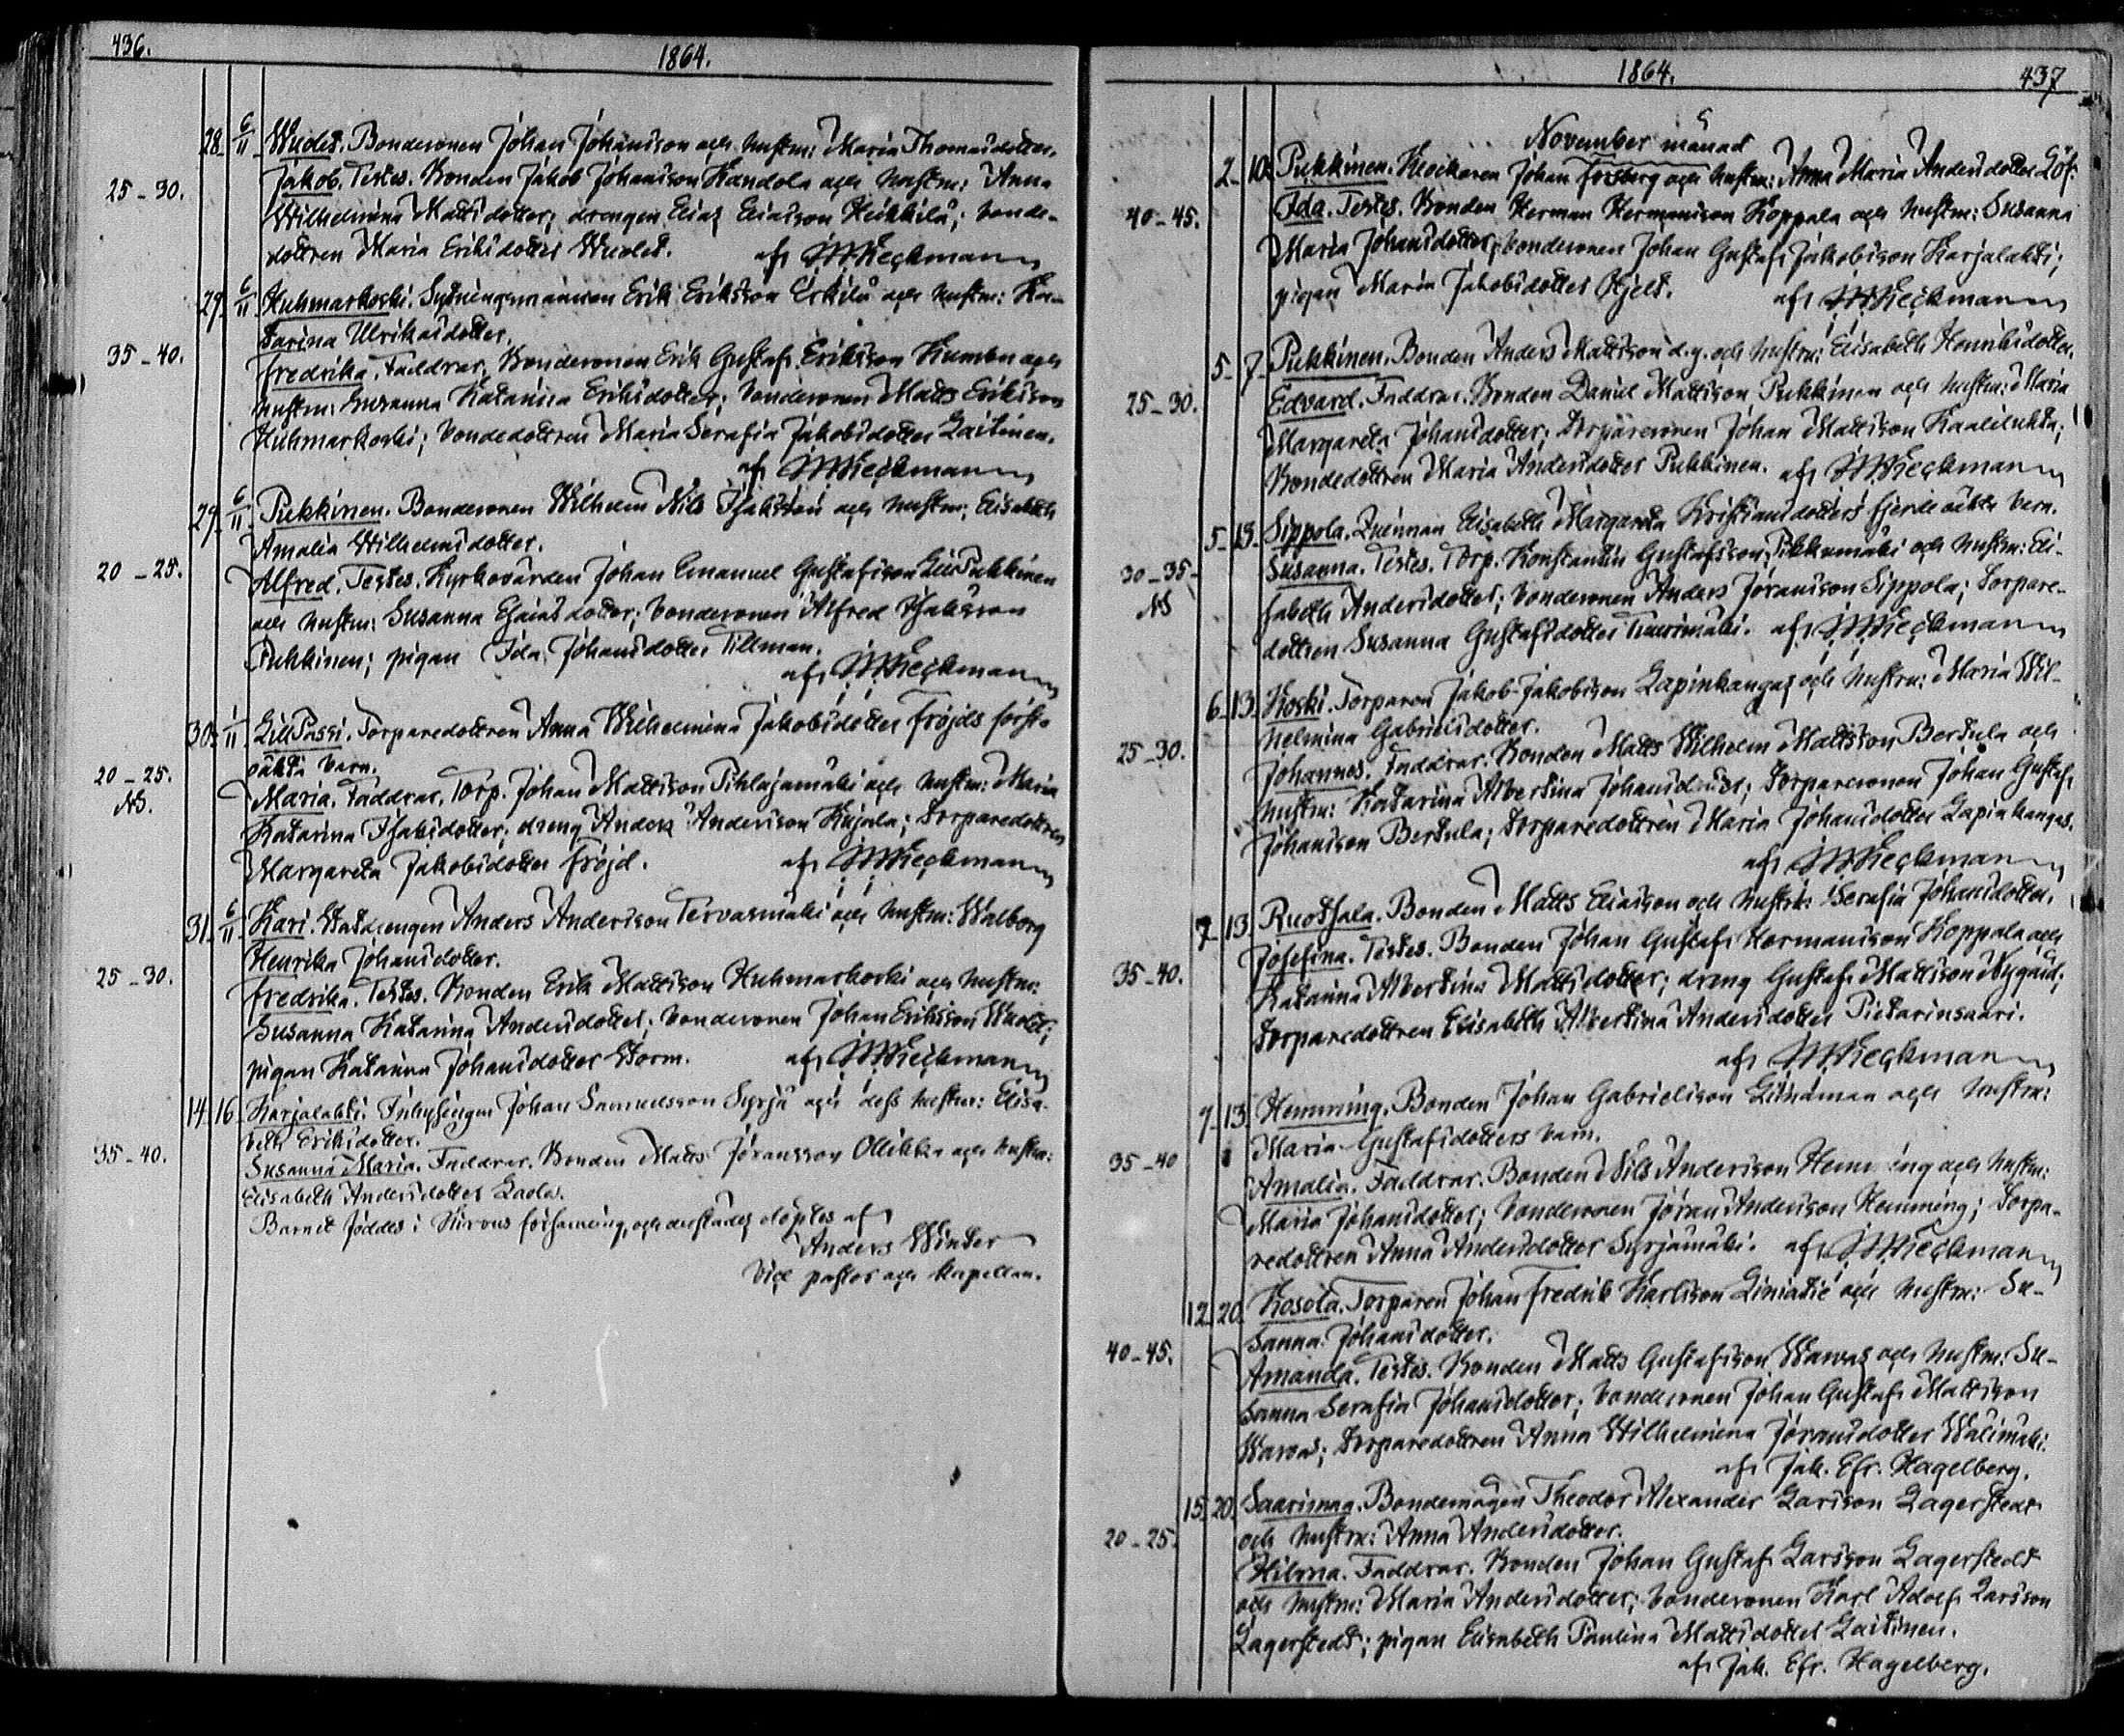 436.
1864.
28. 6/11 Wuolet. Bondesonen Johan Johansson och hustru: Maria Thomasdotter.
25-30. Jakob. Testes. Bonden Jakob Johansson Kandola och hustru: Anna
Wilhelmina Mattsdotter; drengen Elias Eliasson Heikkilä; bonde-
dottren Maria Eriksdotter Wuolet. af
29. 6/11 Huhmarkoski. Sytningsmannen Erik Eriksson Erkilä och hustru: Ka-
tarina Ulrikasdotter.
35-40. Fredrika. Faddrar. Bondesonen Erik Gustaf Eriksson och
hustru: Susanna Katarina Eriksdotter; bondesonen Matts Eriksson
Huhmarkoski; bondedottren Maria Serafia Jakobsdotter Laitinen.
af
29. 6/11 Pukkinen. Bondesonen Wilhelm Nils Isaksson och hustru: Elisabeth
Amalia Wilhelmsdotter.
20-25. Alfred. Testes. Kyrkovärden Johan Emanuel Gustafsson Pukkinen
och hustru: Susanna Esaiasdotter; bondesonen Alfred Isaksson
Pukkinen; pigan Ida Johansdotter Tillman.
af
30. 1/11 LillPassi. Torparedottren Anna Wilhelmina Jakobsdotter Fröjds första
oäkta barn.
20-25. Maria. Faddrar. Torp. Johan Mattsson Pihlajamäki och hustru: Maria
NB. Katarina Isaksdotter; dreng Anders Andersson Kujala; torparedottren
Margareta Jakobsdotter Fröjd. af
31. 6/11 Kari. Statdrengen Anders Andersson Tervasmäki och hustru: Walborg
Henrika Johansdotter.
25-30. Fredrika. Testes. Bonden Erik Mattsson Huhmarkoski och hustru:
Susanna Katarina Andersdotter; bondesonen Johan Eriksson Wuolet;
pigan Katarina Johansdotter Storm. af
14. 16. Karjalahti. Inhysingen Johan Samuelsson Syrjä och dess hustru: Elisa-
beth Eriksdotter.
35-40. Susanna Maria. Faddrar. Bonden Matts Jöransson Ollikka och hustru:
Elisabeth Andersdotter
Barnet föddes i församling, och derstädes döptes af
Anders Winter
Vice pastor och kapellan.
1864.
437
November månad
2. 10. Pukkinen. Klockaren Johan Forsberg och hustru: Anna Maria Andersdotter Löf.
40-45. Ida. Testes. Bonden Herman Hermansson Koppala och hustru: Susanna
Maria Johansdotter; bondesonen Johan Gustaf Jakobsson Karjalahti;
pigan Maria Jakobsdotter Hjelt. af
5. 7. Pukkinen. Bonden Anders Mattsson d.y. och hustru: Elisabeth Henriksdotter.
25-30. Edvard. Faddrar. Bonden Daniel Mattsson Pukkinen och hustru: Maria
Margareta Johansdotter; torparesonen Johan Mattsson Kaaliluhta;
Bondedottren Maria Andersdotter Pukkinen. af
5. 13. Sippola. Qvinnan Elisabeth Margareta Kristiansdotters fjerde oäkta barn.
30-35. Susanna. Testes. Torp. Konstantin Gustafsson Pikkumäki och hustru: Eli-
NB sabeth Andersdotter; bondesonen Anders Jöransson Sippola; torpare-
dottren Susanna Gustafsdotter Tuurimäki. af
6. 13. Koski. Torparen Jakob Jakobsson Lapinkangas och hustru: Maria Wil-
helmina Gabrielsdotter.
25-30. Johannes. Faddrar. Bonden Matts Wilhelm Mattsson Bertula och
hustru: Katarina Albertina Johansdotter; torparesonen Johan Gustaf
Johansson Bertula; torparedottren Maria Johansdotter Lapinkangas.
af
7. 13. Ruotsala. Bonden Matts Eliasson och hustru: Serafia Johansdotter.
35-40. Josefina. Testes. Bonden Johan Gustaf Hermansson Koppala och
Katarina Albertina Mattsdotter; dreng Gustaf Mattsson Nygård;
torparedottren Elisabeth Albertina Andersdotter Pietarinsaari.
af
7. 13. Hemming. Bonden Johan Gabrielsson och hustru:
Maria Gustafsdotters barn.
35-40 Amalia. Faddrar. Bonden Nils Andersson Hemming och hustru:
Maria Johansdotter; bondesonen Jöran Andersson Hemming; torpa-
redottren Anna Andersdotter Syrjämäki. af
12. 20. Kosola. Torparen Johan Fredrik Karlsson och hustru: Su-
sanna Johansdotter.
40-45. Amanda. Testes. Bonden Matts Gustafsson Warvas och hustru: Su-
sanna Serafia Johansdotter; bondesonen Johan Gustaf Mattsson
Warvas; torparedottren Anna Wilhelmina Jöransdotter Wälimäki.
af Jak. Efr. Hagelberg.
15. 20. Saarimaa. Bondemågen Theodor Alexander Larsson Lagerstedt
20-25. och hustru: Anna Andersdotter.
Hilma. Faddrar. Bonden Johan Gustaf Larsson Lagerstedt
och hustru: Maria Andersdotter; bondesonen Karl Adolf Larsson
Lagerstedt; pigan Elisabeth Paulina Mattsdotter Laitinen.
af Jak. Efr. Hagelberg.